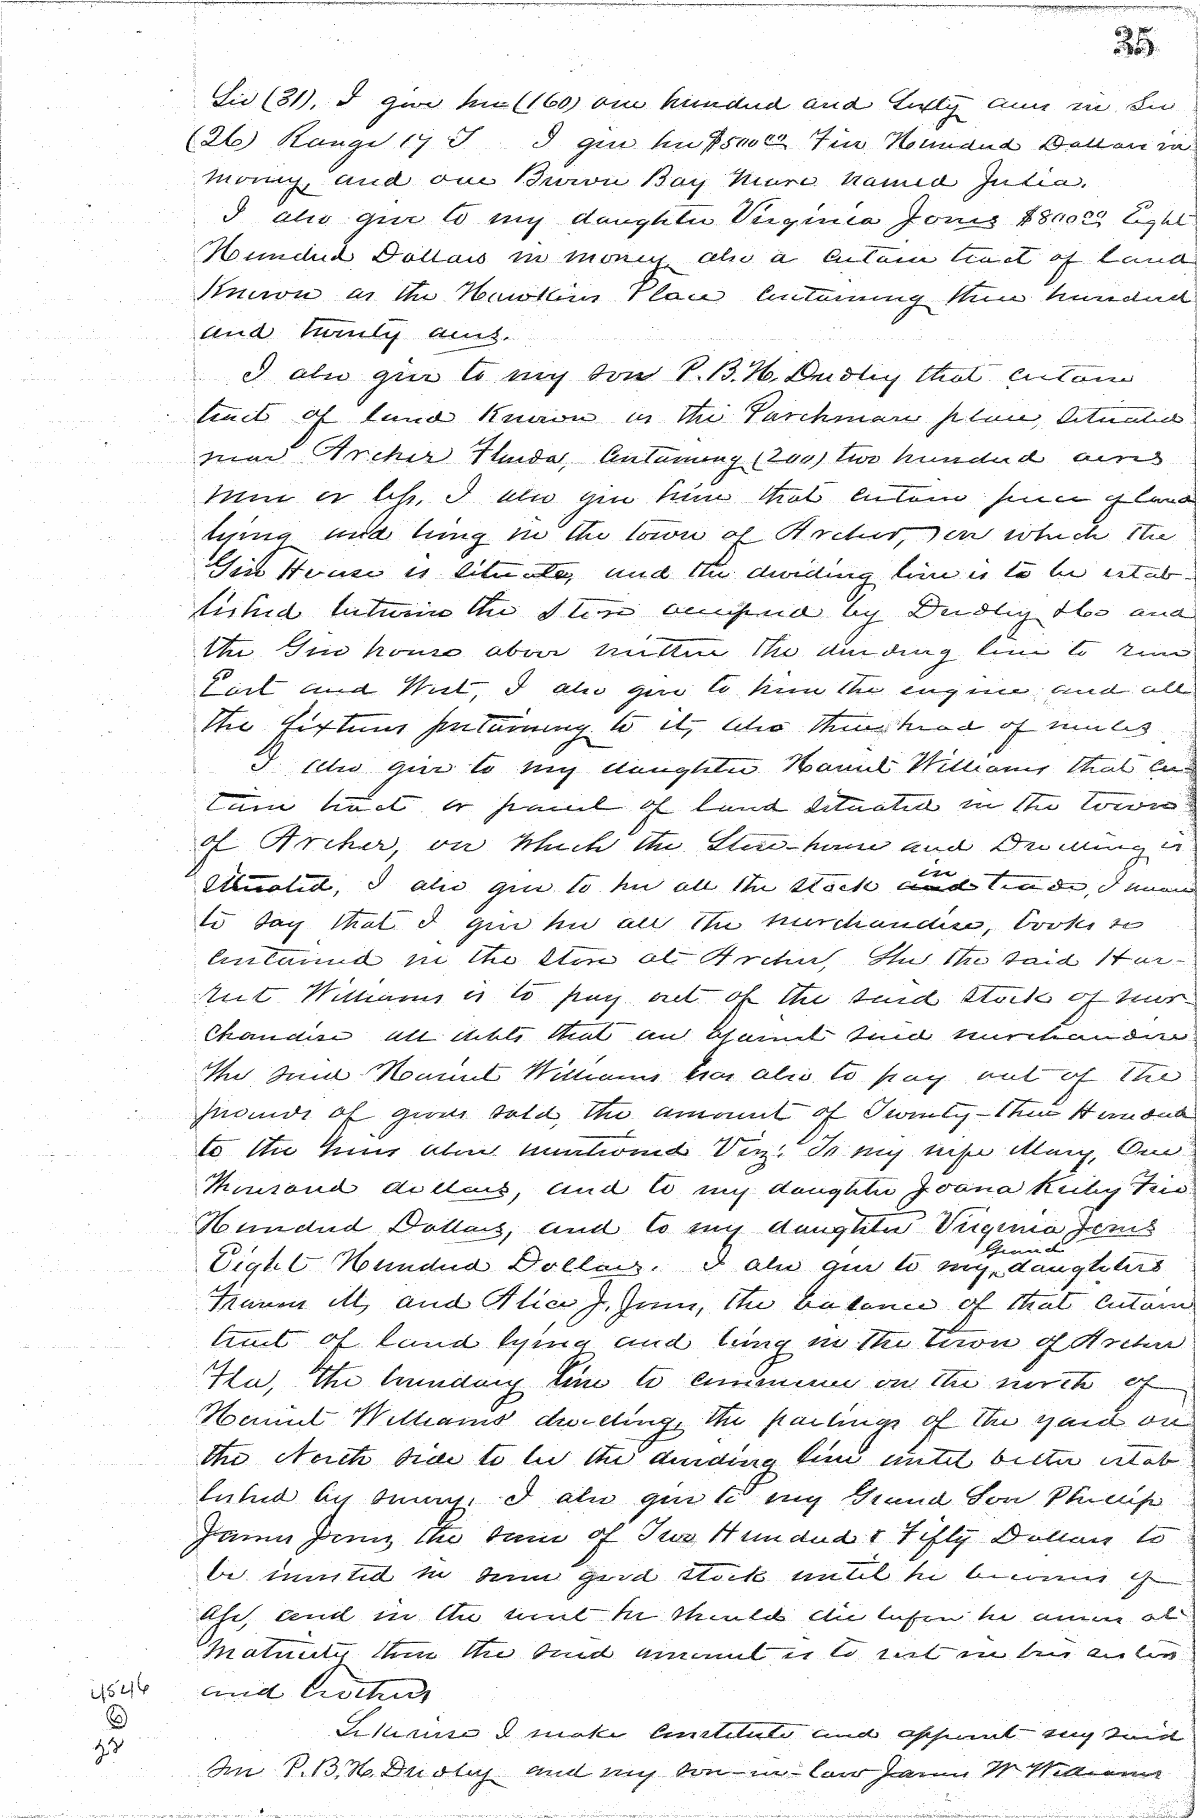 35
Sec (31), I give her (160) one hundred and Sixty acres in Sec
(26) Range 17 S I give her $500.00 Five Hundred Dollars in
money, and one Brown Bay Mare named Julia.
I also give to my daughter Virginia Jones $800.00 Eight
Hundred Dollars in money also a certain tract of land
Known as the Hawkins Place Containing three hundred
and twenty acres.
I also give to my son P. B. H. Dudley that certain
tract of land Known as the Parchman place, Situated
near Archer Florida, Containing (200) two hundred acres
more or less, I also give him that certain piece of land
lying and being in the town of Archer, on which the
Gin House is situate, and the dividing line is to be estab-
lished between the Store occupied by Dudley & Co and
the Gin house above written the dividing line to run
East and West, I also give to him the engine and all
the fixtures pertaining to it, also three head of mules
I also give to my daughter Harriet Williams that cer-
tain tract or parcel of land situated in the town
of Archer, on which the Store-house and Dwelling is
situated, I also give to her all the stock and in trade, I mean
to say that I give her all the merchandise, books &c
contained in the store at Archer, She the said Har-
riet Williams is to pay out of the said stock of mer-
chandise all debts that are against said merchandise
The said Harriet Williams has also to pay out of the
proceeds of goods sold, the amount of Twenty-three Hundred
to the heirs above mentioned Viz: To my wife Mary, One
Thousand dollars, and to my daughter Joana Kirby Five
Hundred Dollars, and to my daughter Virginia Jones
Eight Hundred Dollars. I also give to my Grand daughters
Frances M, and Alice J. Jones, the balance of that certain
tract of land lying and being in the town of Archer
Fla, the boundary line to commence on the north of
Harriet Williams dwelling, the pailings of the yard on
the North side to be the dividing line until better estab
lished by survey. I also give to my Grand Son Phillip
James Jones the sum of Two Hundred & Fifty Dollars to
be invested in some good stock until he becomes of
age, and in the event he should die before he arrives at
maturity then the said amount is to rest in his sisters
and brothers
Likewise I make constitute and appoint my said
son P. B. H. Dudley and my son-in-law James W Williams
4546
6